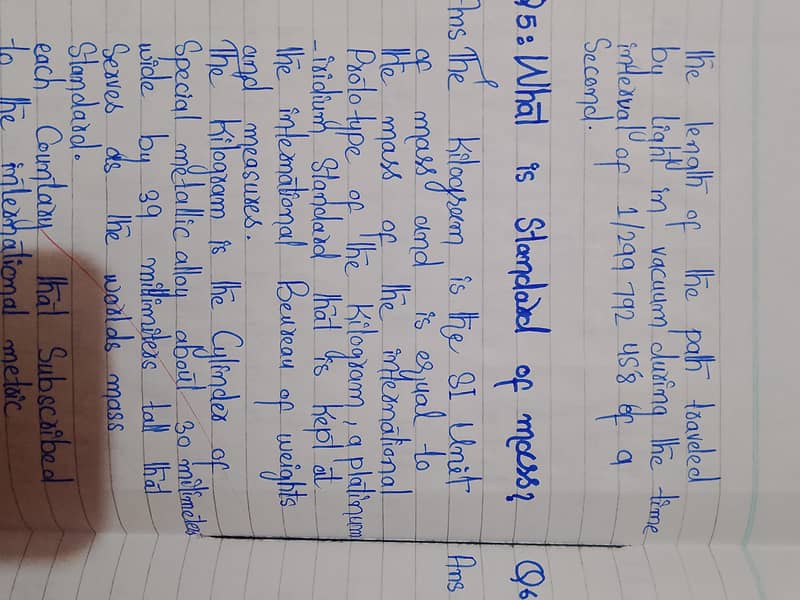 the length of the path traveled
by light in vacuum during the time
interval of 1/299 792 458 of a
Second.
Q5: What is Standard of mass?
Ans The Kilogram is the SI Unit
of mass and is equal to
the mass of the international
Prototype of the Kilogram, a platinum
-iridium Standard that is kept at
the international Beureau of weights
and measures.
The Kilogram is the Cylinder of
Special metallic alloy about 30 millimeters
wide by 39 millimeters tall that
Serves as the worlds mass
Standard.
each Countary that Subscribed
to the international metric
Q6
Ans